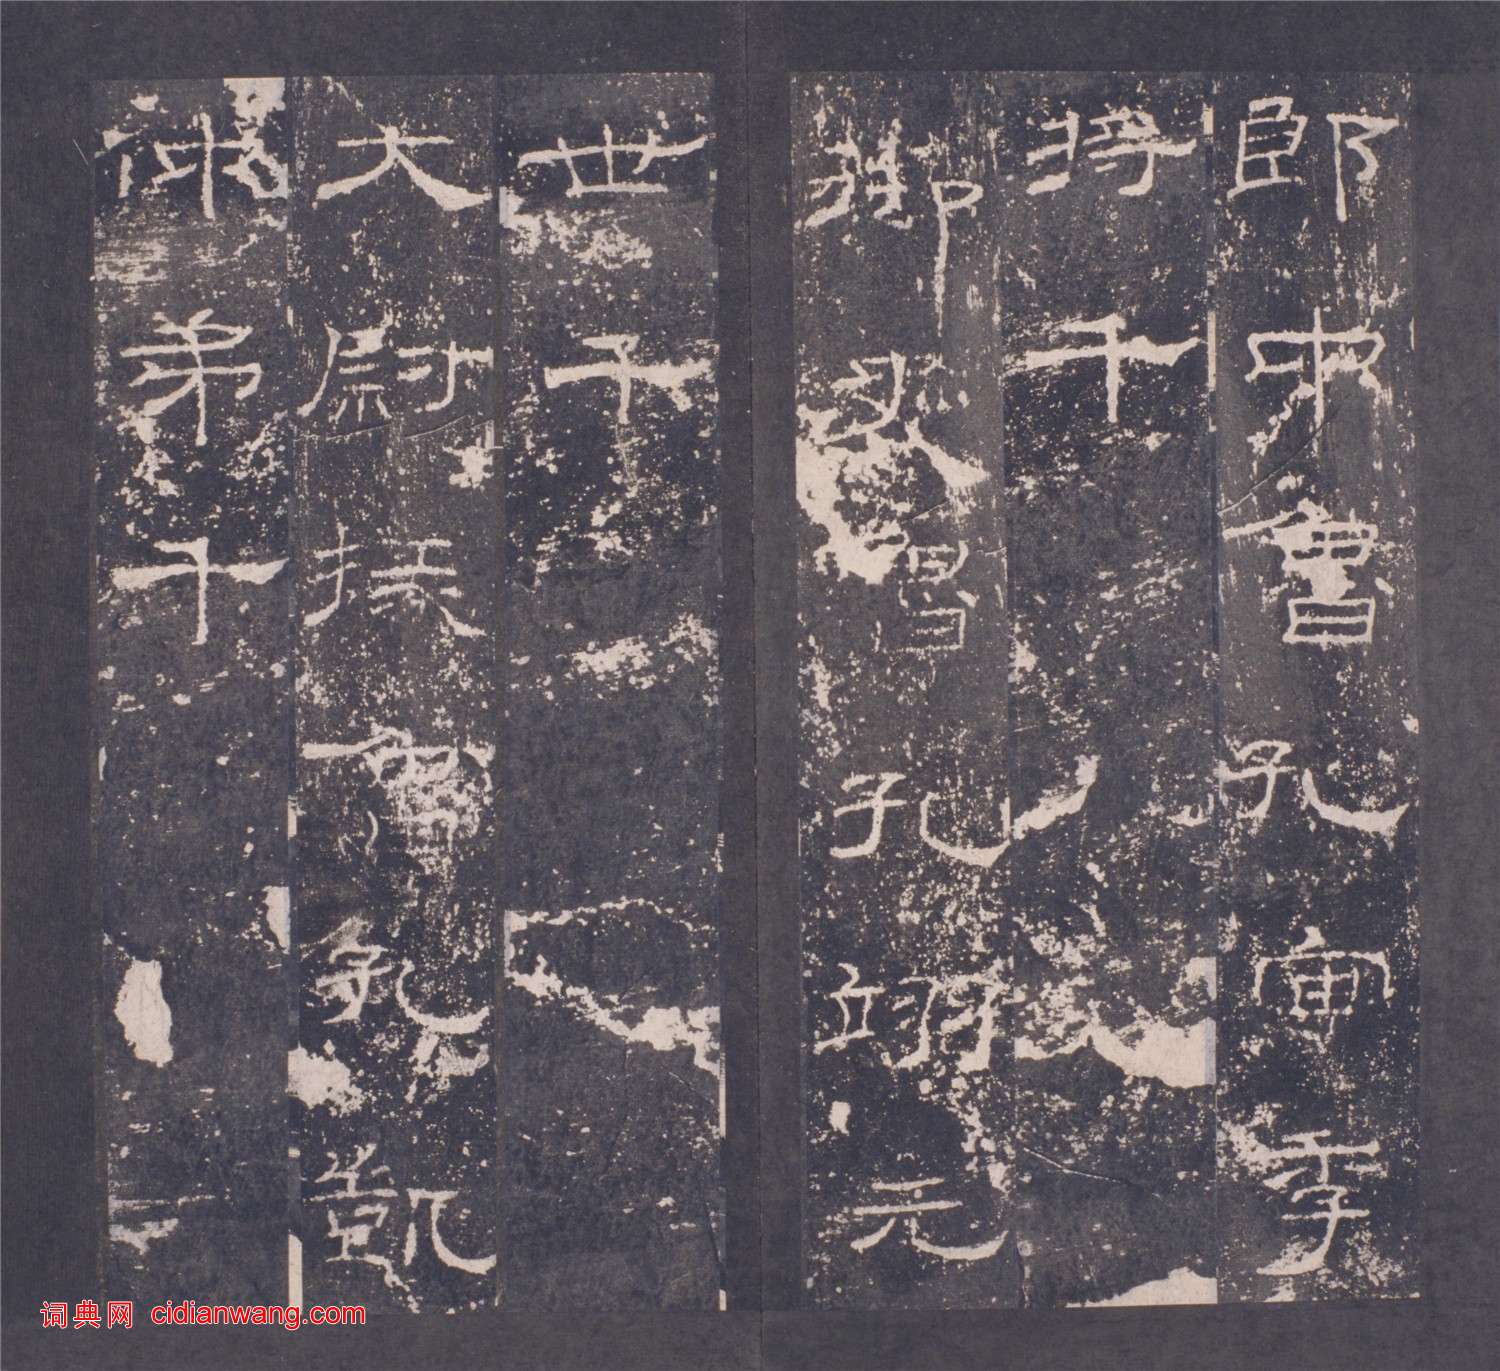 郎中魯孔宙季
將千
御史魯孔翊元
世千
大尉掾魯孔凱
仲弟千
词典网 cidianwang.com